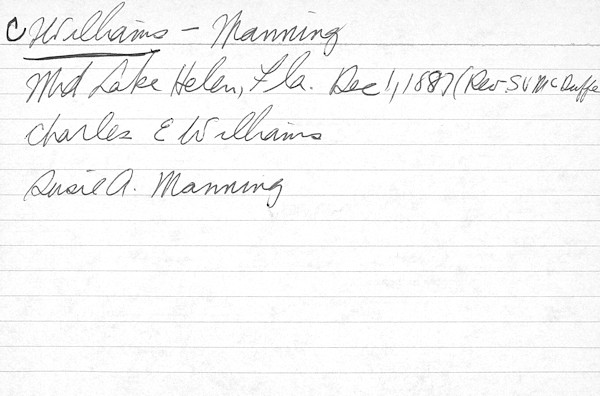 C Williams - Manning
Mrd Lake Helen, Fla. Dec 1, 1887 (Rev. SV McDuffe
Charles E Williams
Susie A. Manning